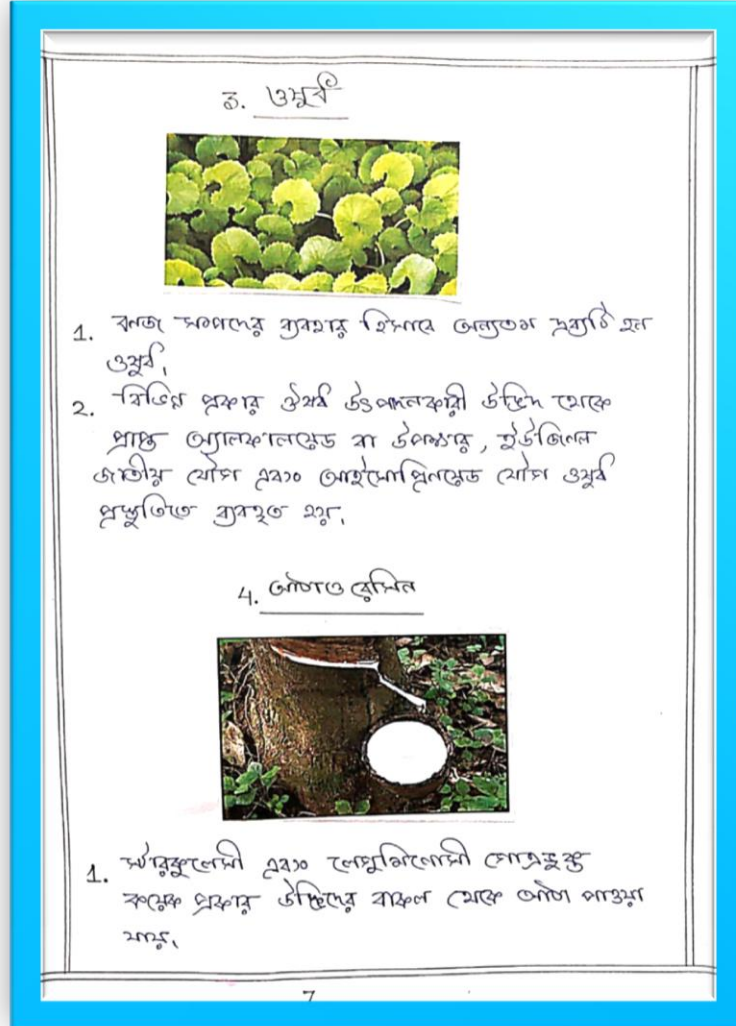 3. ওষুধ
1. বনজ সম্পদের ব্যবহার হিসাবে অন্যতম দ্রব্যটি হল
ওষুধ,
2. বিভিন্ন প্রকার ঔষধ উৎপাদনকারী উদ্ভিদ থেকে
প্রাপ্ত অ্যালকালয়েড বা উপক্ষার, ইউজিনল
জাতীয় যৌগ এবং আইসোপ্রিনয়েড যৌগ ওষুধ
প্রস্তুতিতে ব্যবহৃত হয়,
4. আঠা ও রেসিন
1. স্টারকুলেসী এবং লেগুমিনোসী গোত্রভুক্ত
কয়েক প্রকার উদ্ভিদের বাকল থেকে আঠা পাওয়া
যায়,
7